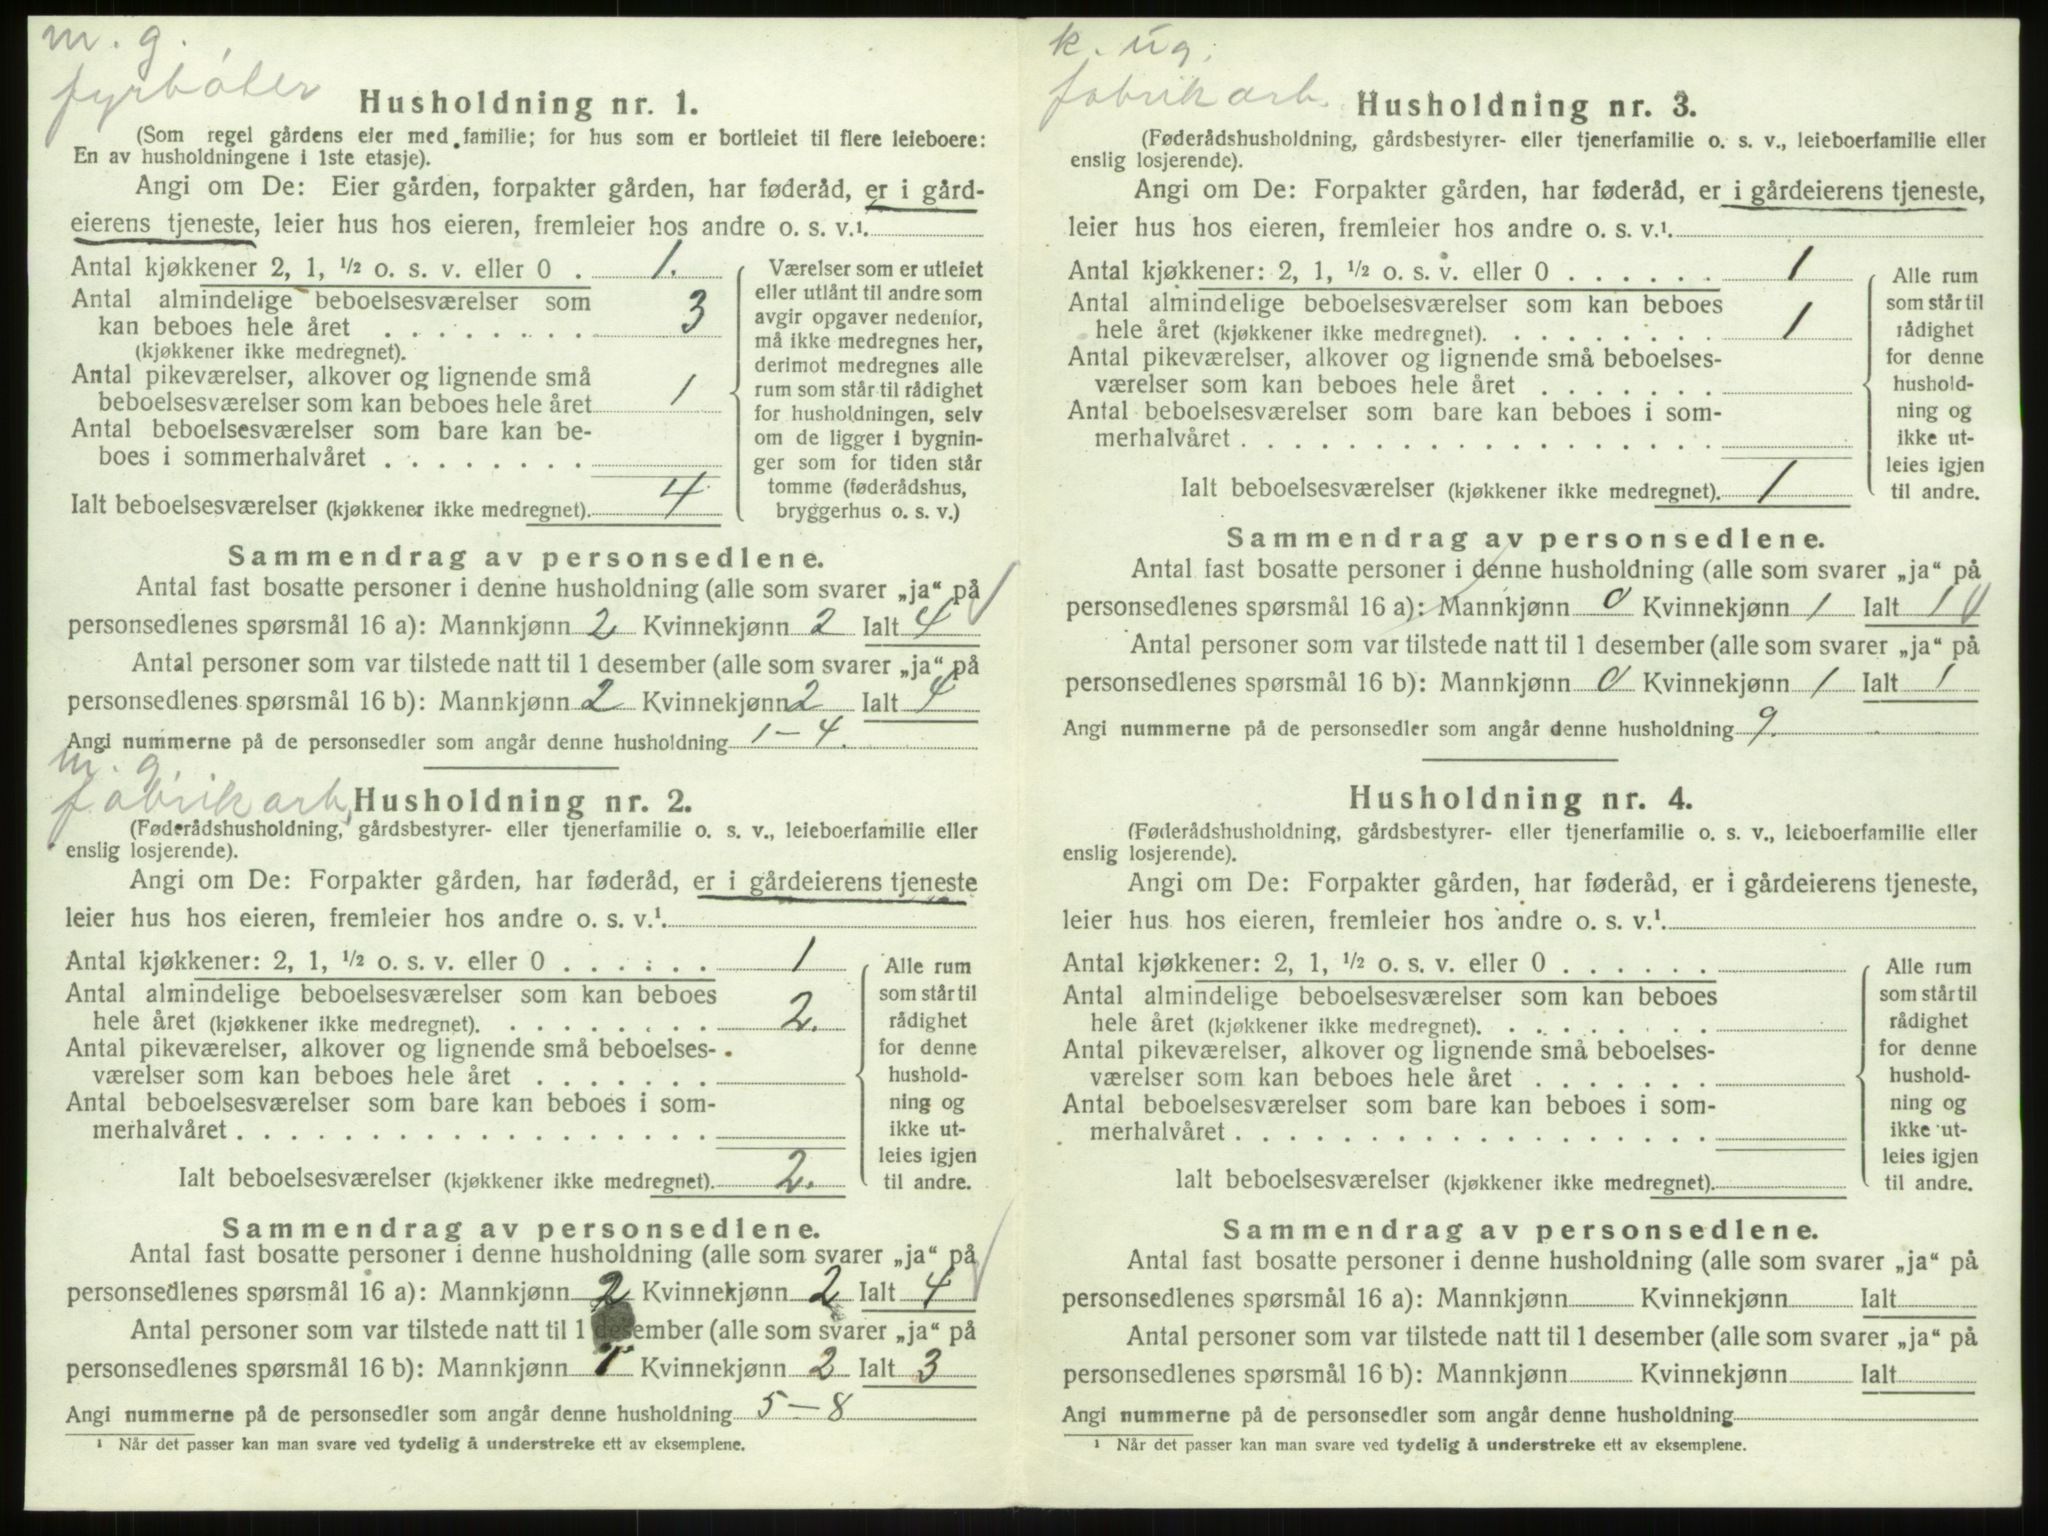 m. g.
fyrbøter
Husholdning nr. 1.
(Som regel gårdens eier med familie; for hus som er bortleiet til flere leieboere:
En av husholdningene i 1ste etasje).
Angi om De: Eier gården, forpakter gården, har føderåd, er i gård-
eierens tjeneste, leier hus hos eieren, fremleier hos andre o. s. v.¹
Antal kjøkkener 2, 1, ½ o. s. v. eller 0 . 1.
Antal almindelige beboelsesværelser som
kan beboes hele året . . . . . . . . 3
(kjøkkener ikke medregnet).
Antal pikeværelser, alkover og lignende små
beboelsesværelser som kan beboes hele året 1
Antal beboelsesværelser som bare kan be-
boes i sommerhalvåret . . . . . . . .
Ialt beboelsesværelser (kjøkkener ikke medregnet). 4
Værelser som er utleiet
eller utlånt til andre som
avgir opgaver nedenfor,
må ikke medregnes her,
derimot medregnes alle
rum som står til rådighet
for husholdningen, selv
om de ligger i bygnin-
ger som for tiden står
tomme (føderådshus,
bryggerhus o. s. v.)
Sammendrag av personsedlene.
Antal fast bosatte personer i denne husholdning (alle som svarer „ja“ på
personsedlenes spørsmål 16 a): Mannkjønn 2 Kvinnekjønn 2 Ialt 4
Antal personer som var tilstede natt til 1 desember (alle som svarer „ja“ på
personsedlenes spørsmål 16 b): Mannkjønn 2 Kvinnekjønn 2 Ialt 4
Angi nummerne på de personsedler som angår denne husholdning 1 – 4.
m. g.
fabrikarb.
Husholdning nr. 2.
(Føderådshusholdning, gårdsbestyrer- eller tjenerfamilie o. s. v., leieboerfamilie eller
enslig losjerende).
Angi om De: Forpakter gården, har føderåd, er i gårdeierens tjeneste
leier hus hos eieren, fremleier hos andre o. s. v.¹
Antal kjøkkener: 2, 1, ½ o. s. v. eller 0 . . . . . . 1
Antal almindelige beboelsesværelser som kan beboes
hele året (kjøkkener ikke medregnet). . . . . . . . . 2.
Antal pikeværelser, alkover og lignende små beboelses-
værelser som kan beboes hele året . . . . . . .
Antal beboelsesværelser som bare kan beboes i som-
merhalvåret . . . . . . . . . . . . . . . . . .
Ialt beboelsesværelser (kjøkkener ikke medregnet). 2.
Alle rum
som står til
rådighet
for denne
hushold-
ning og
ikke ut-
leies igjen
til andre.
Sammendrag av personsedlene.
Antal fast bosatte personer i denne husholdning (alle som svarer „ja“ på
personsedlenes spørsmål 16 a): Mannkjønn 2 Kvinnekjønn 2 Ialt 4
Antal personer som var tilstede natt til 1 desember (alle som svarer „ja“ på
personsedlenes spørsmål 16 b): Mannkjønn 1 Kvinnekjønn 2 Ialt 3
Angi nummerne på de personsedler som angår denne husholdning 5 – 8
¹ Når det passer kan man svare ved tydelig å understreke ett av eksemplene.
k. ug.
fabrikarb.
Husholdning nr. 3.
(Føderådshusholdning, gårdsbestyrer- eller tjenerfamilie o. s. v., leieboerfamilie eller
enslig losjerende).
Angi om De: Forpakter gården, har føderåd, er i gårdeierens tjeneste,
leier hus hos eieren, fremleier hos andre o. s. v.¹
Antal kjøkkener: 2, 1, ½ o. s. v. eller 0 . . . . . . 1
Antal almindelige beboelsesværelser som kan beboes
hele året (kjøkkener ikke medregnet). . . . . . . . . 1
Antal pikeværelser, alkover og lignende små beboelses-
værelser som kan beboes hele året . . . . . . .
Antal beboelsesværelser som bare kan beboes i som-
merhalvåret . . . . . . . . . . . . . . . . . .
Ialt beboelsesværelser (kjøkkener ikke medregnet). 1
Alle rum
som står til
rådighet
for denne
hushold-
ning og
ikke ut-
leies igjen
til andre.
Sammendrag av personsedlene.
Antal fast bosatte personer i denne husholdning (alle som svarer „ja“ på
personsedlenes spørsmål 16 a): Mannkjønn 0 Kvinnekjønn 1 Ialt 1
Antal personer som var tilstede natt til 1 desember (alle som svarer „ja“ på
personsedlenes spørsmål 16 b): Mannkjønn 0 Kvinnekjønn 1 Ialt 1
Angi nummerne på de personsedler som angår denne husholdning 9.
Husholdning nr. 4.
(Føderådshusholdning, gårdsbestyrer- eller tjenerfamilie o. s. v., leieboerfamilie eller
enslig losjerende).
Angi om De: Forpakter gården, har føderåd, er i gårdeierens tjeneste,
leier hus hos eieren, fremleier hos andre o. s. v.¹
Antal kjøkkener: 2, 1, ½ o. s. v. eller 0 . . . . . .
Antal almindelige beboelsesværelser som kan beboes
hele året (kjøkkener ikke medregnet). . . . . . . . .
Antal pikeværelser, alkover og lignende små beboelses-
værelser som kan beboes hele året . . . . . . .
Antal beboelsesværelser som bare kan beboes i som-
merhalvåret . . . . . . . . . . . . . . . . . .
Ialt beboelsesværelser (kjøkkener ikke medregnet).
Alle rum
som står til
rådighet
for denne
hushold-
ning og
ikke ut-
leies igjen
til andre.
Sammendrag av personsedlene.
Antal fast bosatte personer i denne husholdning (alle som svarer „ja“ på
personsedlenes spørsmål 16 a): Mannkjønn Kvinnekjønn Ialt
Antal personer som var tilstede natt til 1 desember (alle som svarer „ja“ på
personsedlenes spørsmål 16 b): Mannkjønn Kvinnekjønn Ialt
Angi nummerne på de personsedler som angår denne husholdning
¹ Når det passer kan man svare ved tydelig å understreke ett av eksemplene.